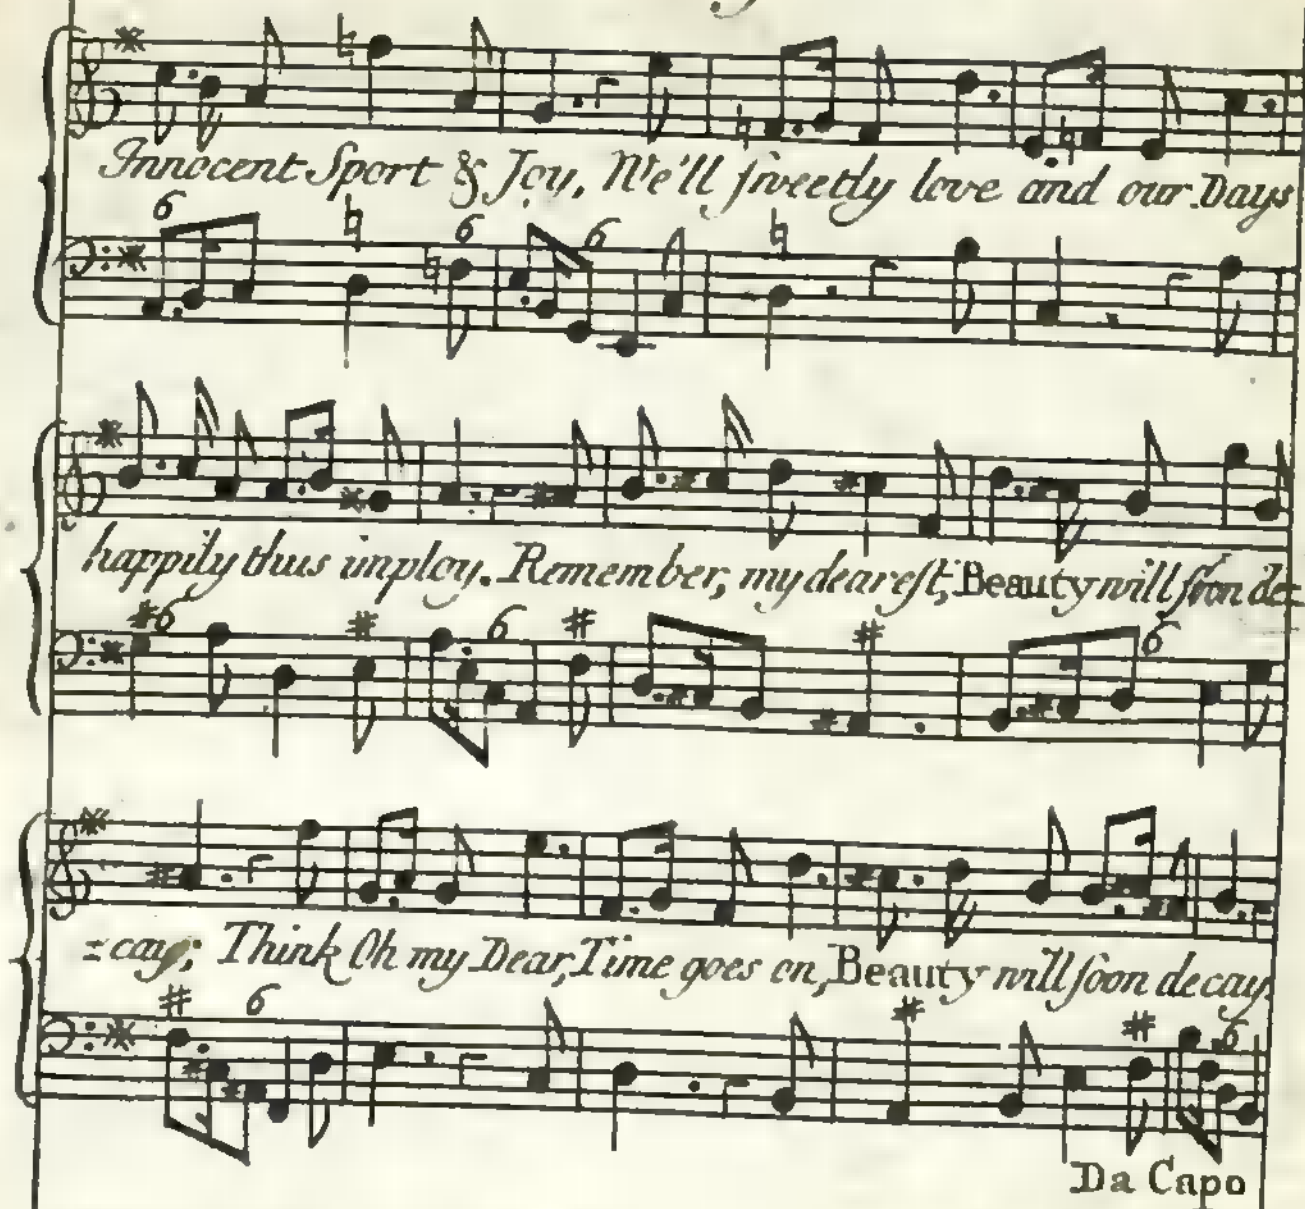 Innocent Sport & Joy, We'll sweetly love and our Days
6 6 6
happily thus imploy. Remember, my dearest, Beauty will soon de=
6 6 6
=cay; Think Oh my Dear, Time goes on, Beauty will soon decay.
6 6
Da Capo